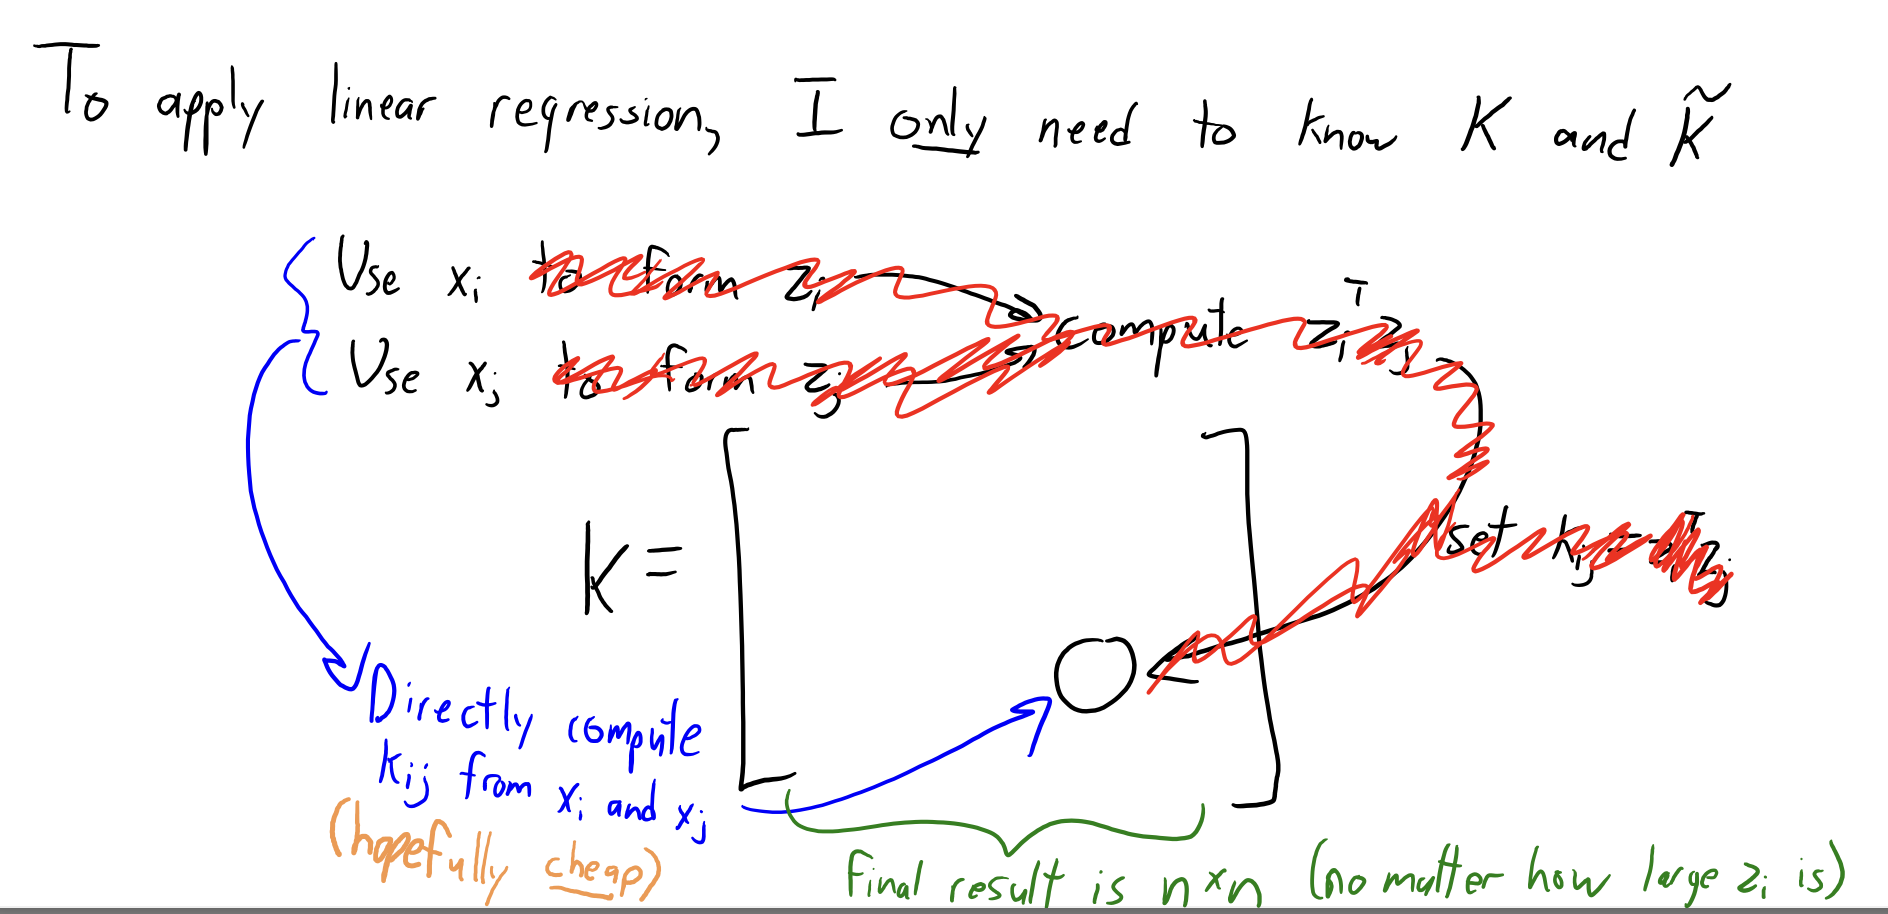 To apply linear regression, I only need to know K and K̃
Use xᵢ to form zᵢ
Use xⱼ to form zⱼ
compute zᵢᵀzⱼ
K =
set kᵢⱼ = zᵢᵀzⱼ
Directly compute
kᵢⱼ from xᵢ and xⱼ
(hopefully cheap)
Final result is n×n (no matter how large zᵢ is)